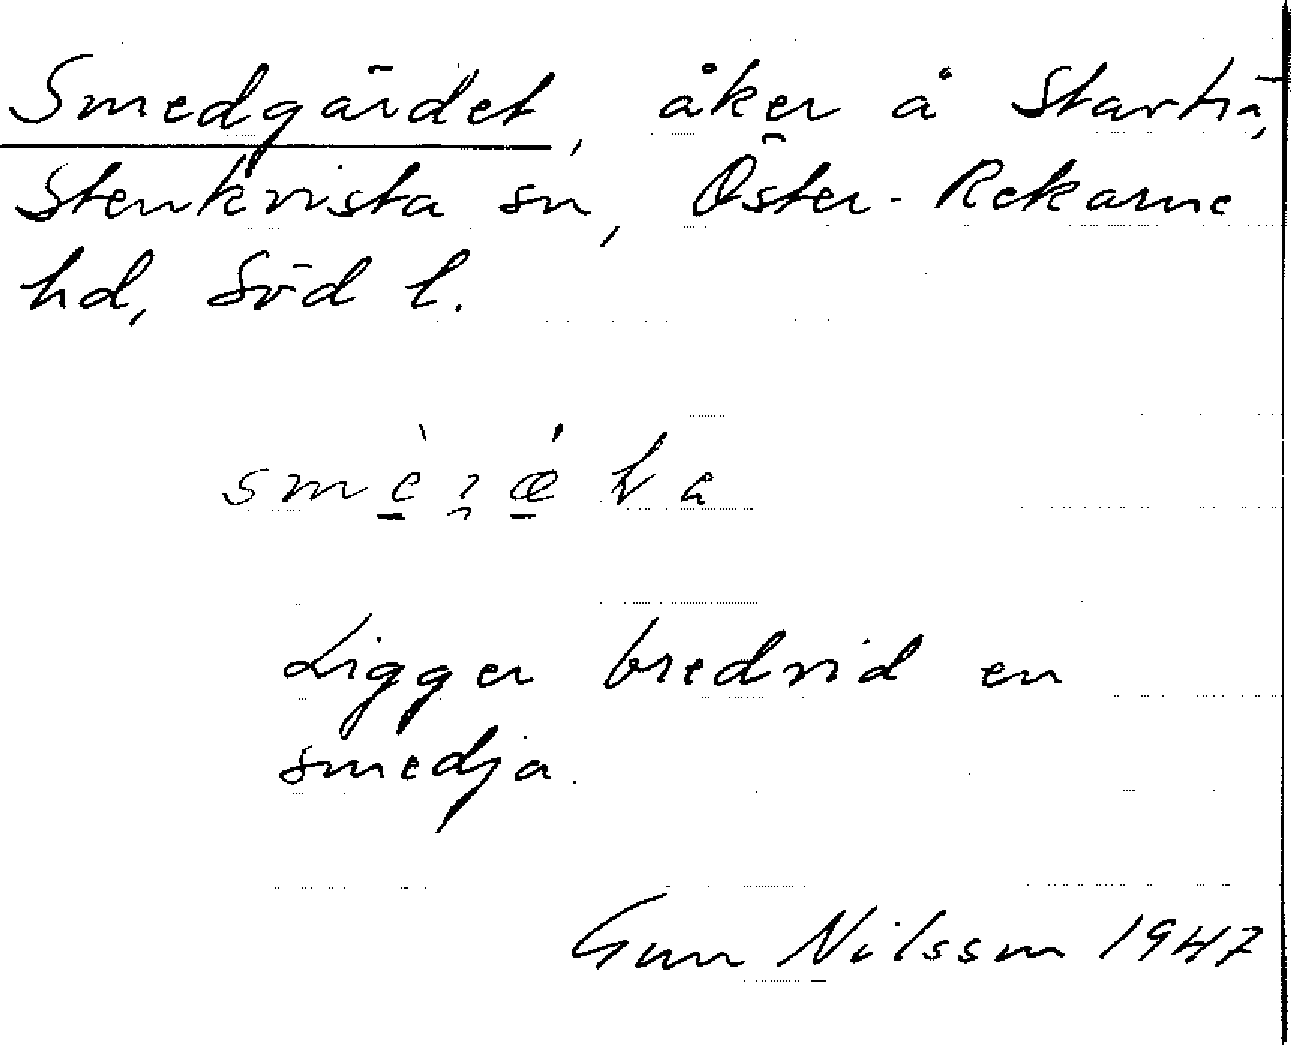 Smedgärdet, åker å Starhä,
Stenkvista sn, Öster-Rekarne
hd, Söd l.
Ligger bredvid en
smedja.
Gun Nilsson 1947